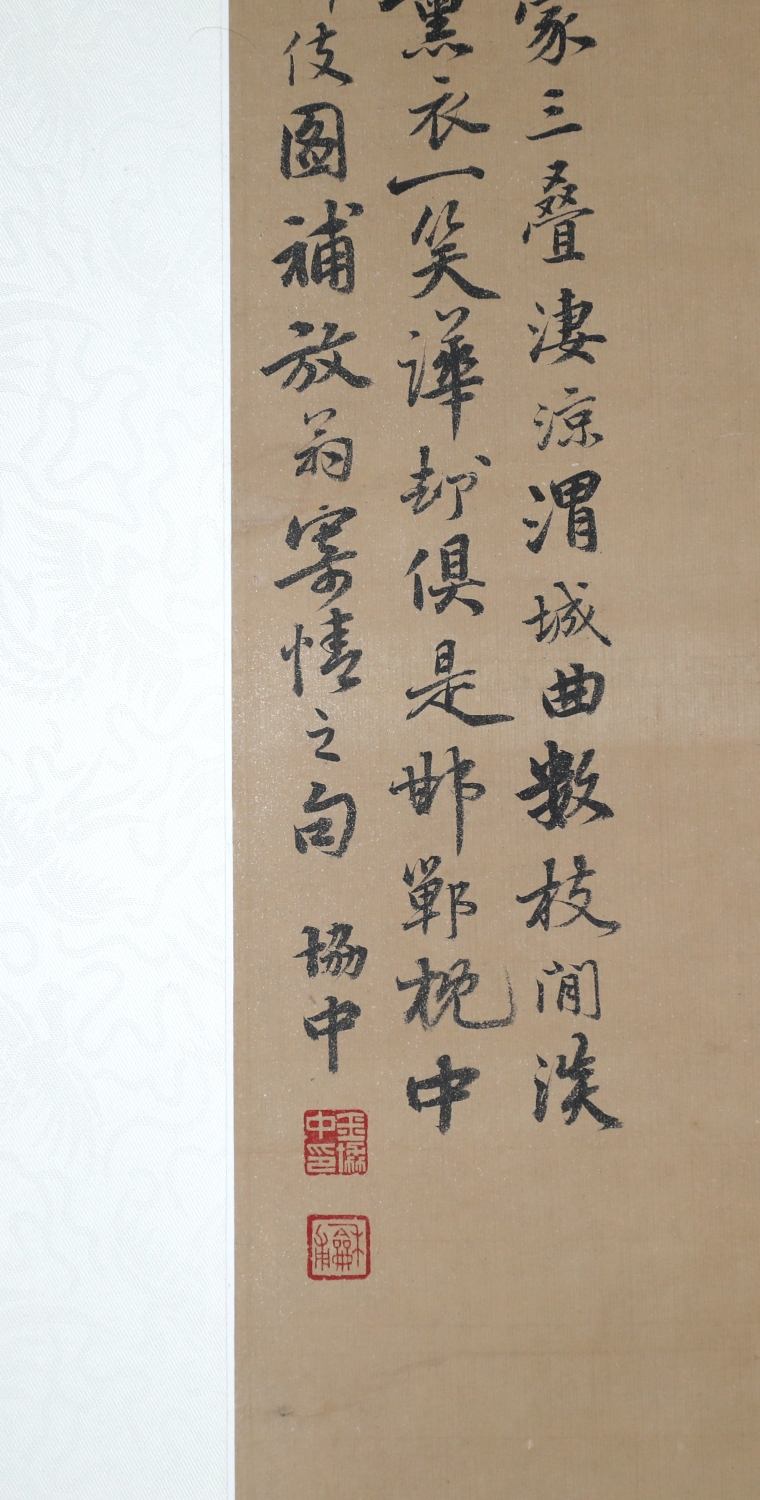 家三叠淒涼渭城曲數枝閒淡
薰衣一笑譁却俱是邯鄲枕中
伎圖補放翁寄情之句 協中
王協中印
龢甫